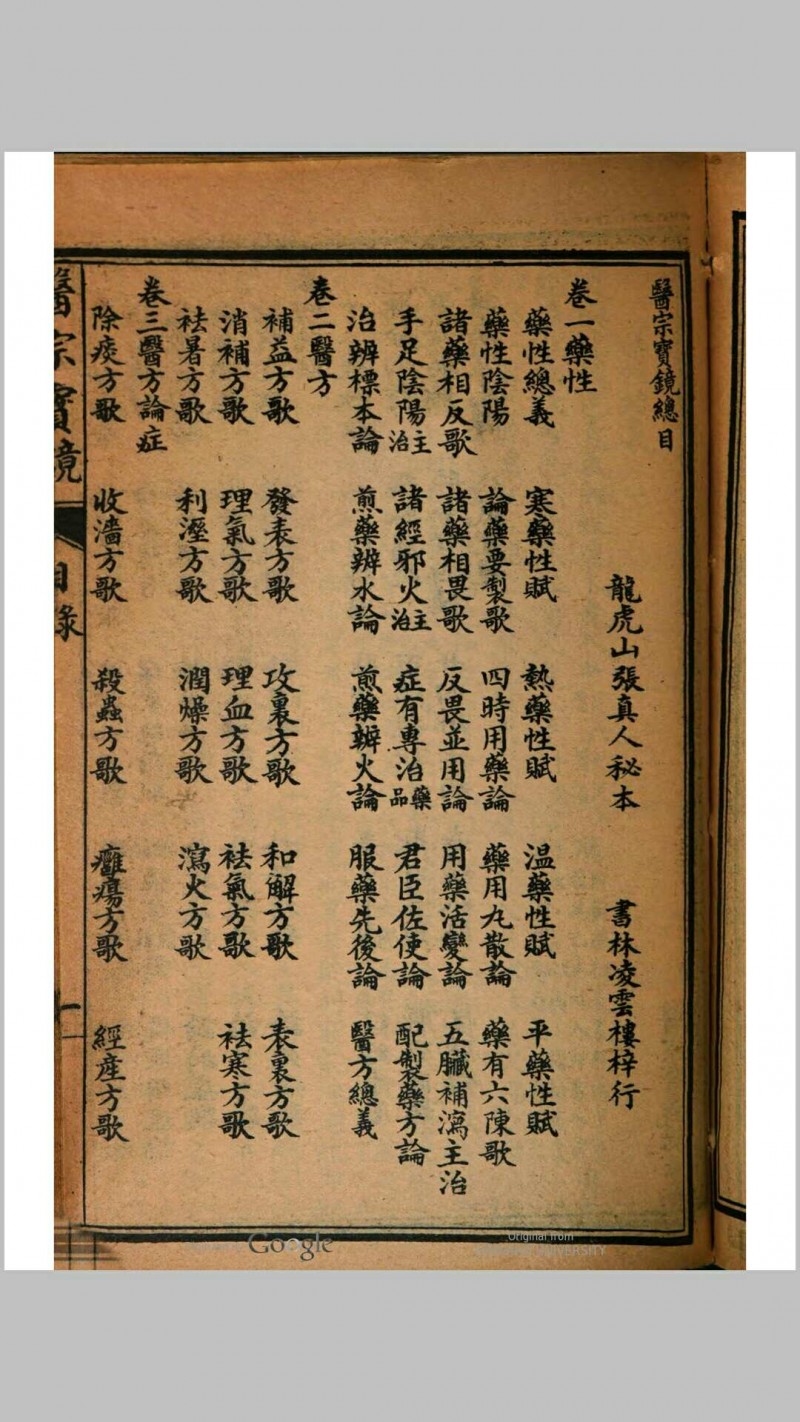 醫宗寶鏡總目
龍虎山張真人秘本 書林凌雲樓梓行
卷一藥性
藥性總義 寒藥性賦 熱藥性賦 温藥性賦 平藥性賦
藥性陰陽 論藥要製歌 四時用藥論 藥用丸散論 藥有六陳歌
諸藥相反歌 諸藥相畏歌 反畏並用論 用藥活變論 五臟補瀉主治
手足陰陽主治 諸經邪火主治 症有專治藥品 君臣佐使論 配製藥方論
治辨標本論 煎藥辨水論 煎藥辨火論 服藥先後論 醫方總義
卷二醫方
補益方歌 發表方歌 攻裏方歌 和解方歌 表裏方歌
消補方歌 理氣方歌 理血方歌 袪氣方歌 袪寒方歌
袪暑方歌 利溼方歌 潤燥方歌 瀉火方歌
卷三醫方論症
除痰方歌 收濇方歌 殺蟲方歌 癰瘍方歌 經産方歌
醫宗寶鏡 目錄 一
Google
Original from
UNIVERSITY